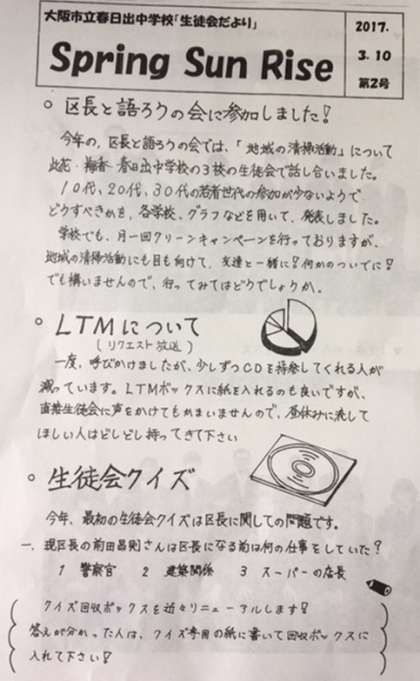 大阪市立春日出中学校「生徒会だより」
Spring Sun Rise
2017.
3.10
第2号
○ 区長と語ろうの会に参加しました!
今年の、区長と語ろうの会では、「地域の清掃活動」について
此花・梅香・春日出中学校の3校の生徒会で話し合いました。
10代、20代、30代の若者世代の参加が少ないようで
どうすべきかを、各学校、グラフなどを用いて、発表しました。
学校でも、月一回クリーンキャンペーンを行っておりますが、
地域の清掃活動にも目も向けて、友達と一緒に!何かのついでに!
でも構いませんので、行ってみてはどうでしょうか。
○ LTMについて
(リクエスト放送)
一度、呼びかけましたが、少しずつCDを持参してくれる人が
減っています。LTMボックスに紙を入れるのも良いですが、
直接生徒会に声をかけてもかまいませんので、昼休みに流して
ほしい人はどしどし持ってきて下さい
○ 生徒会クイズ
今年、最初の生徒会クイズは区長に関しての問題です。
一、現区長の前田昌則さんは区長になる前は何の仕事をしていた?
1 警察官 2 建築関係 3 スーパーの店長
クイズ回収ボックスを近々リニューアルします!
答えが分かった人は、クイズ専用の紙に書いて回収ボックスに
入れて下さい!